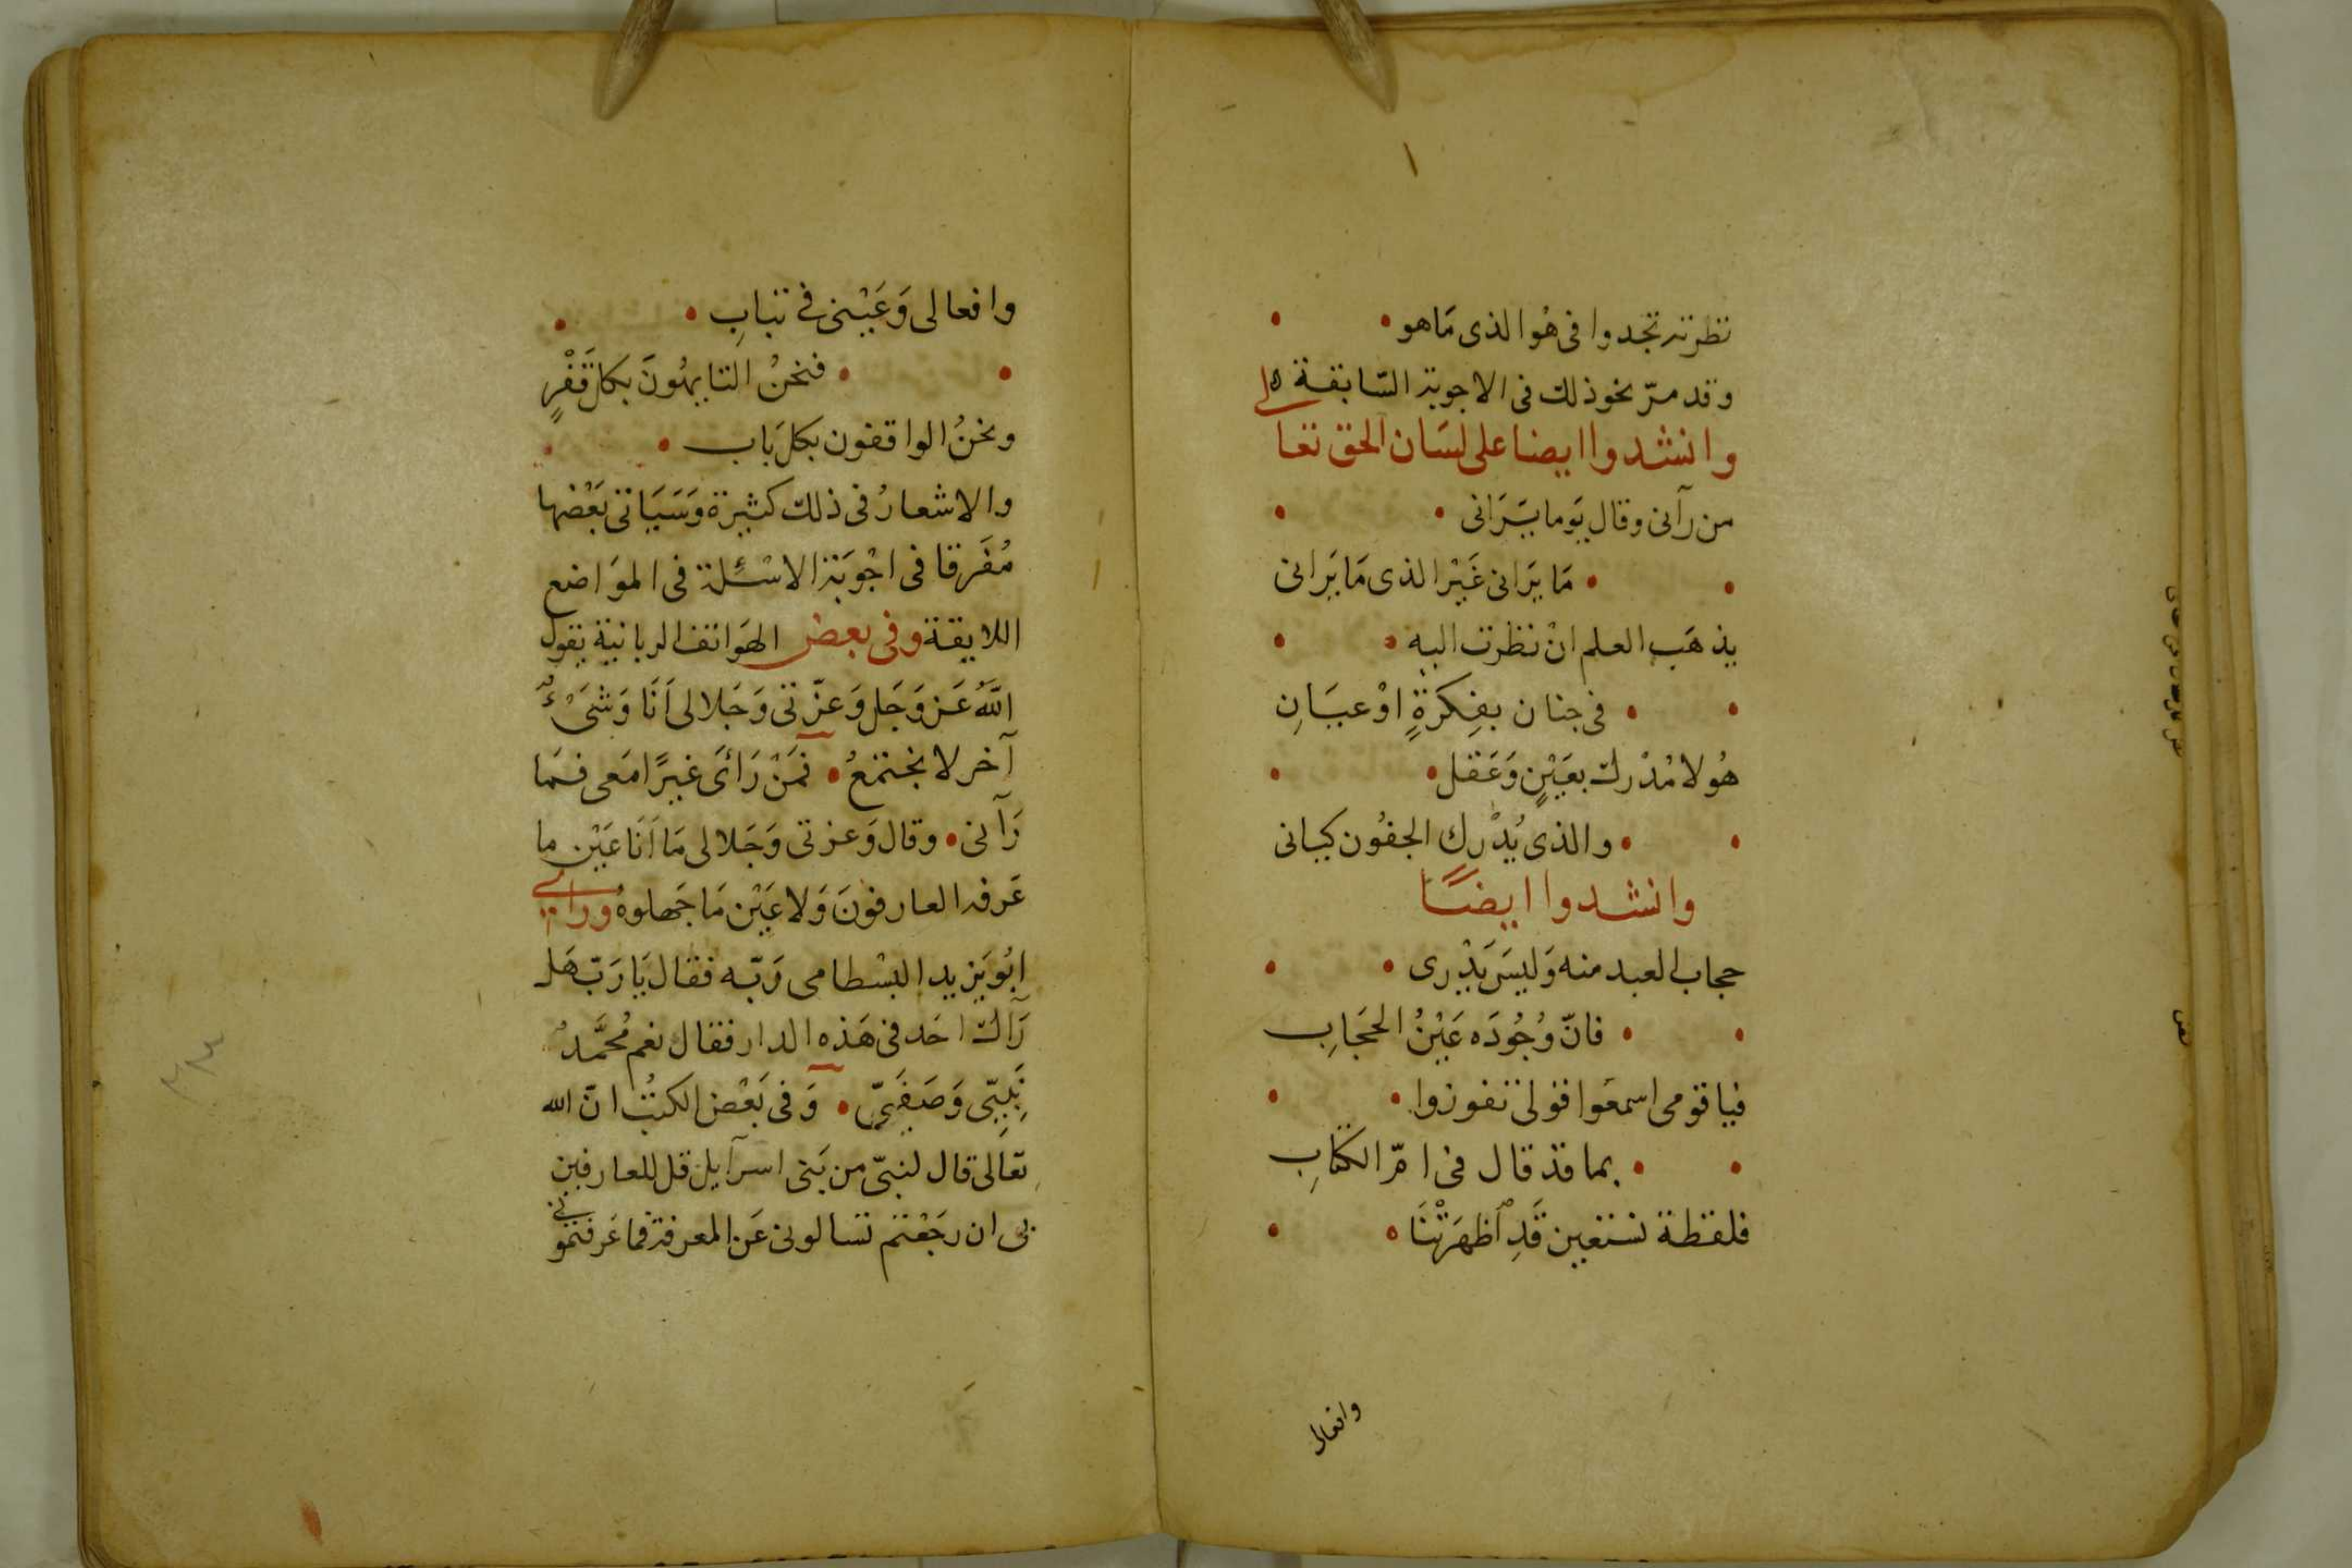 نظرته تجدوا فى هُوا الذى مَاهو
وقد مرّ نحو ذلك فى الاجوبة السّابقة ه
وانشدوا ايضا على لسَان الحق تعالى
من رآنى وقال يَوما يَرَانى
مَا يَرَانى غَيْر الذى مَا يَرانى
يذهَب العلم انْ نظرت اليه
فى جنان بفِكرَةٍ اوْ عيَانِ
هُو لا مُدْرك بعَيْنٍ وَعَقل
والذى يُدْرك الجفُون كيانى
وانشدوا ايضًا
حجاب العبد منه وَليسَ يَدْرى
فانّ وُجُودَه عَيْنُ الحجَابِ
فيا قومى اسمعَوا قولى تفوزوا
بما قد قال فى امّ الكتابِ
فلفظة نستعين قَدِ ٱظهَرَتْنَا
وافعالى
وافعالى وَعَيْنى فى تبابِ
فنحنُ التايهُونَ بكل قَفْرٍ
ونحنُ الواقفون بكل بَاب
والاشعارُ فى ذلك كثيرة وَسَيَاتى بَعْضها
مُفَرقا فى اجْوبَة الاسْئِلة فى الموَاضع
اللايقة وفى بعض الهَواتف الربانية يقول
اللّهُ عَز وَجَل وَعزّتى وَجَلالى اَنَا وَشَىْءٌ
آخر لا نجتمعُ فمَنْ رَاَى غيرًا مَعى فمَا
رَآنى وقال وَعزتى وَجَلالى مَا اَنَا عَيْن ما
عَرفه العارفونَ وَلا عَيْن مَا جَهلوهُ وراى
ابُو يَزيد البسْطامى رَبّه فقال يَا رَبّ هَل
رَآك احَد فى هَذه الدار فقال نعم مُحَمَّدٌ
نَبِيّى وَصَفَيّى وَفى بَعْض الكتُب انّ الله
تعَالى قال لنبىّ من بَنى اسرآيل قل للعارفين
بى ان رجَعْتم تسالونى عَن المعرفة فما عَرفتمونى